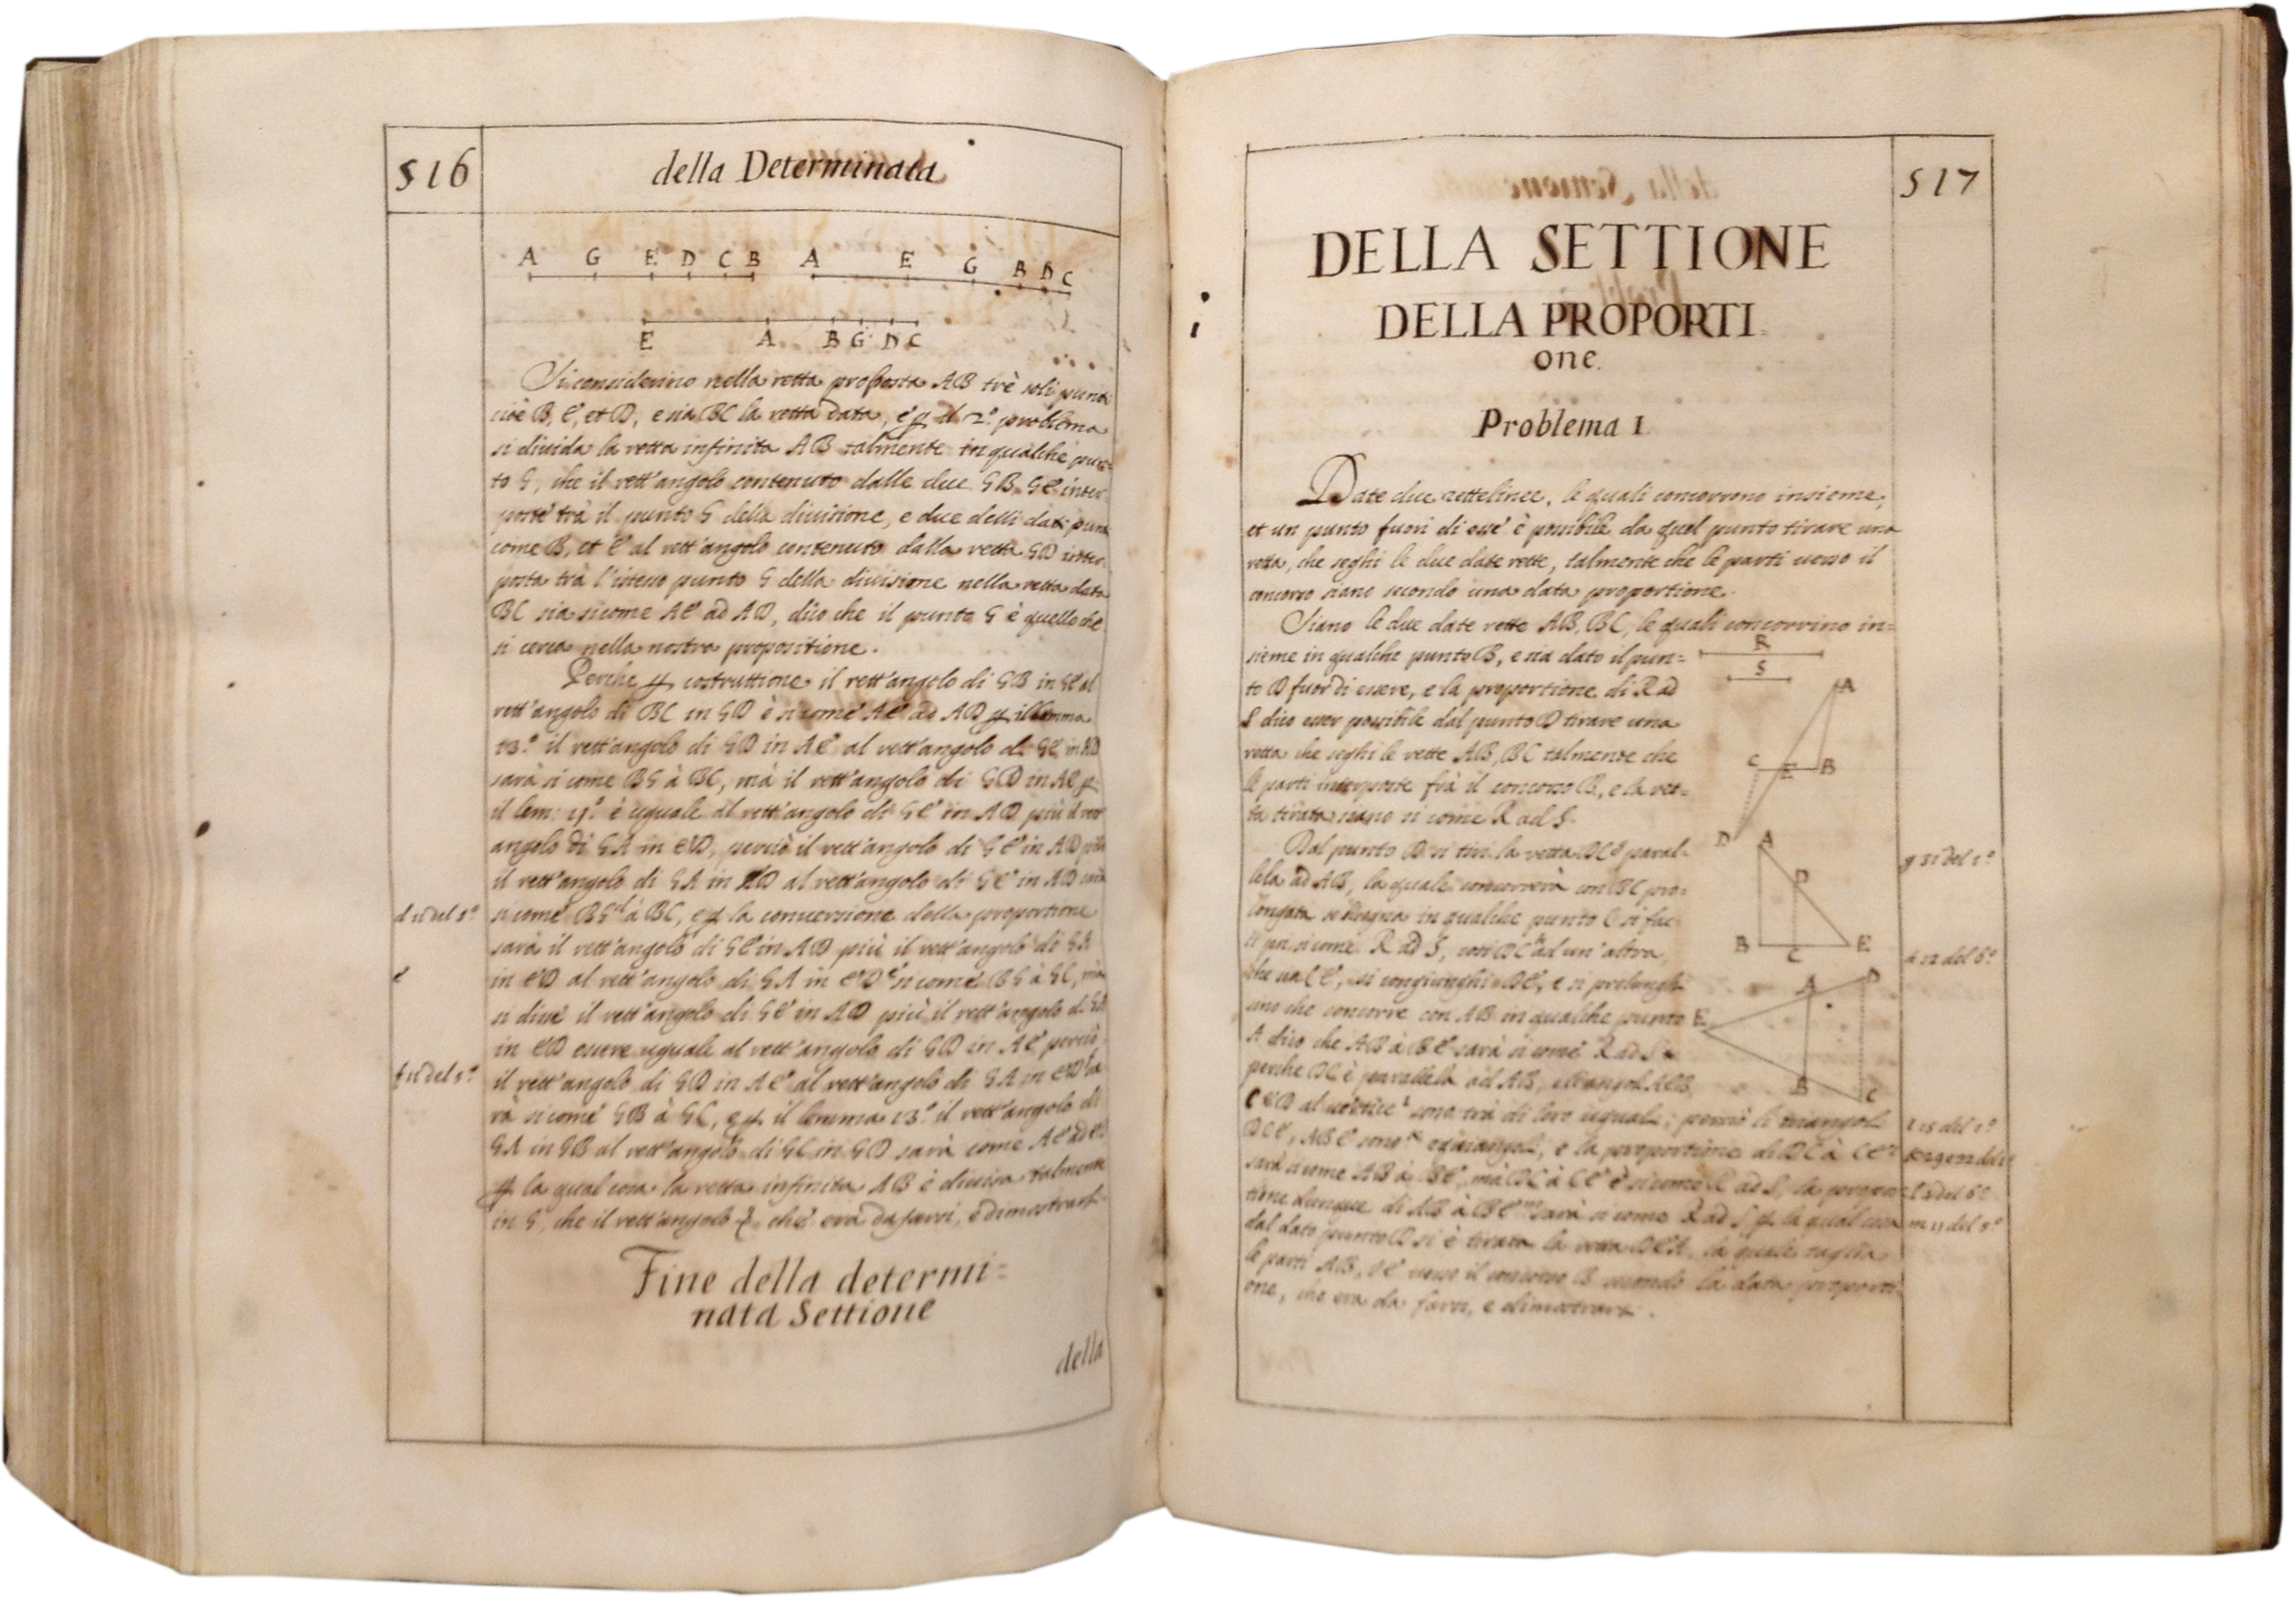 516
della Determinata
A G E D C B A E G B D C
E A B G D C
Si considerino nella retta proposta AB trè soli punti
cioè B, C, et D, e sia BC la retta data, e p il 2.º problema
si divida la retta infinita AB talmente in qualche pun=
to G, che il rett'angolo contenuto dalle due GB, GC inter
poste trà il punto G della divisione, e due delli dati punti
come B, et C al rett'angolo contenuto dalla retta GD inter
posta trà l'istesso punto G della divisione nella retta data
BC sia sicome AC ad AD, dico che il punto G è quello che
si cerca nella nostra propositione.
Perche p costruttione il rett'angolo di GB in GC al
rett'angolo di BC in GD è si come AC ad AD p il lemma
13.º il rett'angolo di GD in AC al rett'angolo di GC in AD
sarà si come BG à BC, mà il rett'angolo di GD in AC p
il lem: 11.º è uguale al rett'angolo di GC in AD più il rett
angolo di GA in CD, perciò il rett'angolo di GC in AD più
il rett'angolo di GA in CD al rett'angolo di GC in AD sarà
d 11 del 5.º
si come BG d à BC, e p la conversione della proportione
sarà il rett'angolo di GC in AD più il rett'angolo di GA
e
in CD al rett'angolo di GA in CD e si come BG à GC, mà
si disse il rett'angolo di GC in AD più il rett'angolo di GA
in CD essere uguale al rett'angolo di GD in AC perciò
f 11 del 5.º
il rett'angolo di GD in AC al rett'angolo di GA in CD f sa
rà si come GB à GC, e p il lemma 13.º il rett'angolo di
GA in GB al rett'angolo di GC in GD sarà come AC ad CD
p la qual cosa la retta infinita AB è divisa talmente
in G, che il rett'angolo che era da farsi, e dimostrarsi.
Fine della determi=
nata Settione
della
517
DELLA SETTIONE
DELLA PROPORTI
one.
Problema 1.
Date due rette linee, le quali concorrono insieme,
et un punto fuori di esse è possibile da quel punto tirare una
retta, che seghi le due date rette, talmente che le parti verso il
concorso siano secondo una data proportione.
Siano le due date rette AB, BC, le quali concorrino in=
sieme in qualche punto B, e sia dato il pun=
to D fuor di essere, e la proportione di R ad
S dico esser possibile dal punto D tirare una
retta che seghi le rette AB, BC talmente che
le parti interposte frà il concorso B, e la ret=
ta tirata siano si come R ad S.
R
S
A
C E B
D
Dal punto D si tiri la retta DC g paral=
lela ad AB, la quale concorrerà con BC pro=
longata se bisogna in qualche punto C si fac
ci poi si come R ad S, così DC h ad un'altra,
che sia CE, si congiunghi DE, e si prolunghi
sino che concorre con AB in qualche punto
A dico che AB à BE sarà si come R ad S
perche DC è parallela ad AB, e li angoli AEB,
CED al vertice i sono trà di loro uguali; perciò li triangoli
DCE, ABE sono k equiangoli, e la proportione di DC à CE l
sarà si come AB à BE, mà DC à CE è si come R ad S, la propor
tione dunque di AB à BE m sarà si come R ad S p la qual cosa
dal dato punto D si è tirata la retta DEA, la quale taglia
le parti AB, BE verso il concorso B secondo la data proporti
one, che era da farsi, e dimostrarsi.
A
D
B C E
A D
E
B C
g 31 del 1.º
h 12 del 6.º
i 15 del 1.º
k 29 e 32 del 1.º
l 4 del 6.º
m 11 del 5.º